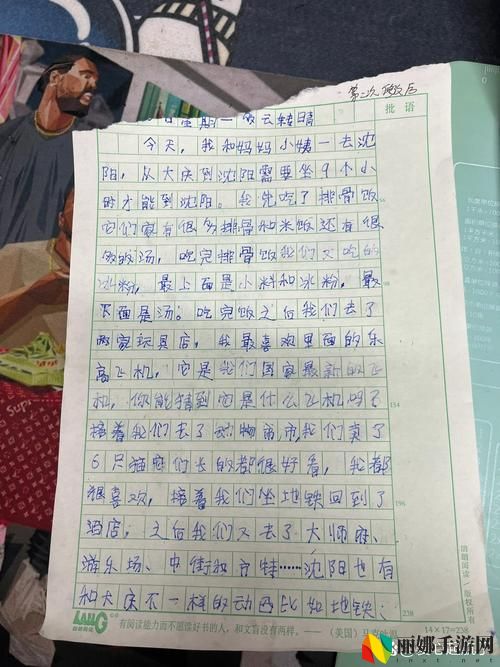 第二次
批语
星期一 转晴
今天，我和妈妈小姨一去沈
阳，从大庆到沈阳需要坐9个小
时才能到沈阳。我先吃了排骨饭
它们家有很多排骨和米饭还有很
汤，吃完排骨饭我们又吃的
冰粉，最上面是小料和冰粉，最
下面是汤；吃完饭之后我们去了
两家玩具店，我最喜欢里面的乐
高飞机，它是我们国家最新的飞
机，你能猜到它是什么飞机吗？
接着我们去了动物市，我们卖了
6只猫它们长的都很好看，我都
很喜欢，接着我们坐地铁回到了
酒店；之后我们又去了大师府、
游乐场、中街和……沈阳也有
和大庆不一样的动西比如地铁；
154
196
238
14×17=238
有阅读能力而不愿读好书的人，和文盲没有两样。——（美国）马克
朗朗阅读 版权所有
Supr
丽娜手游网